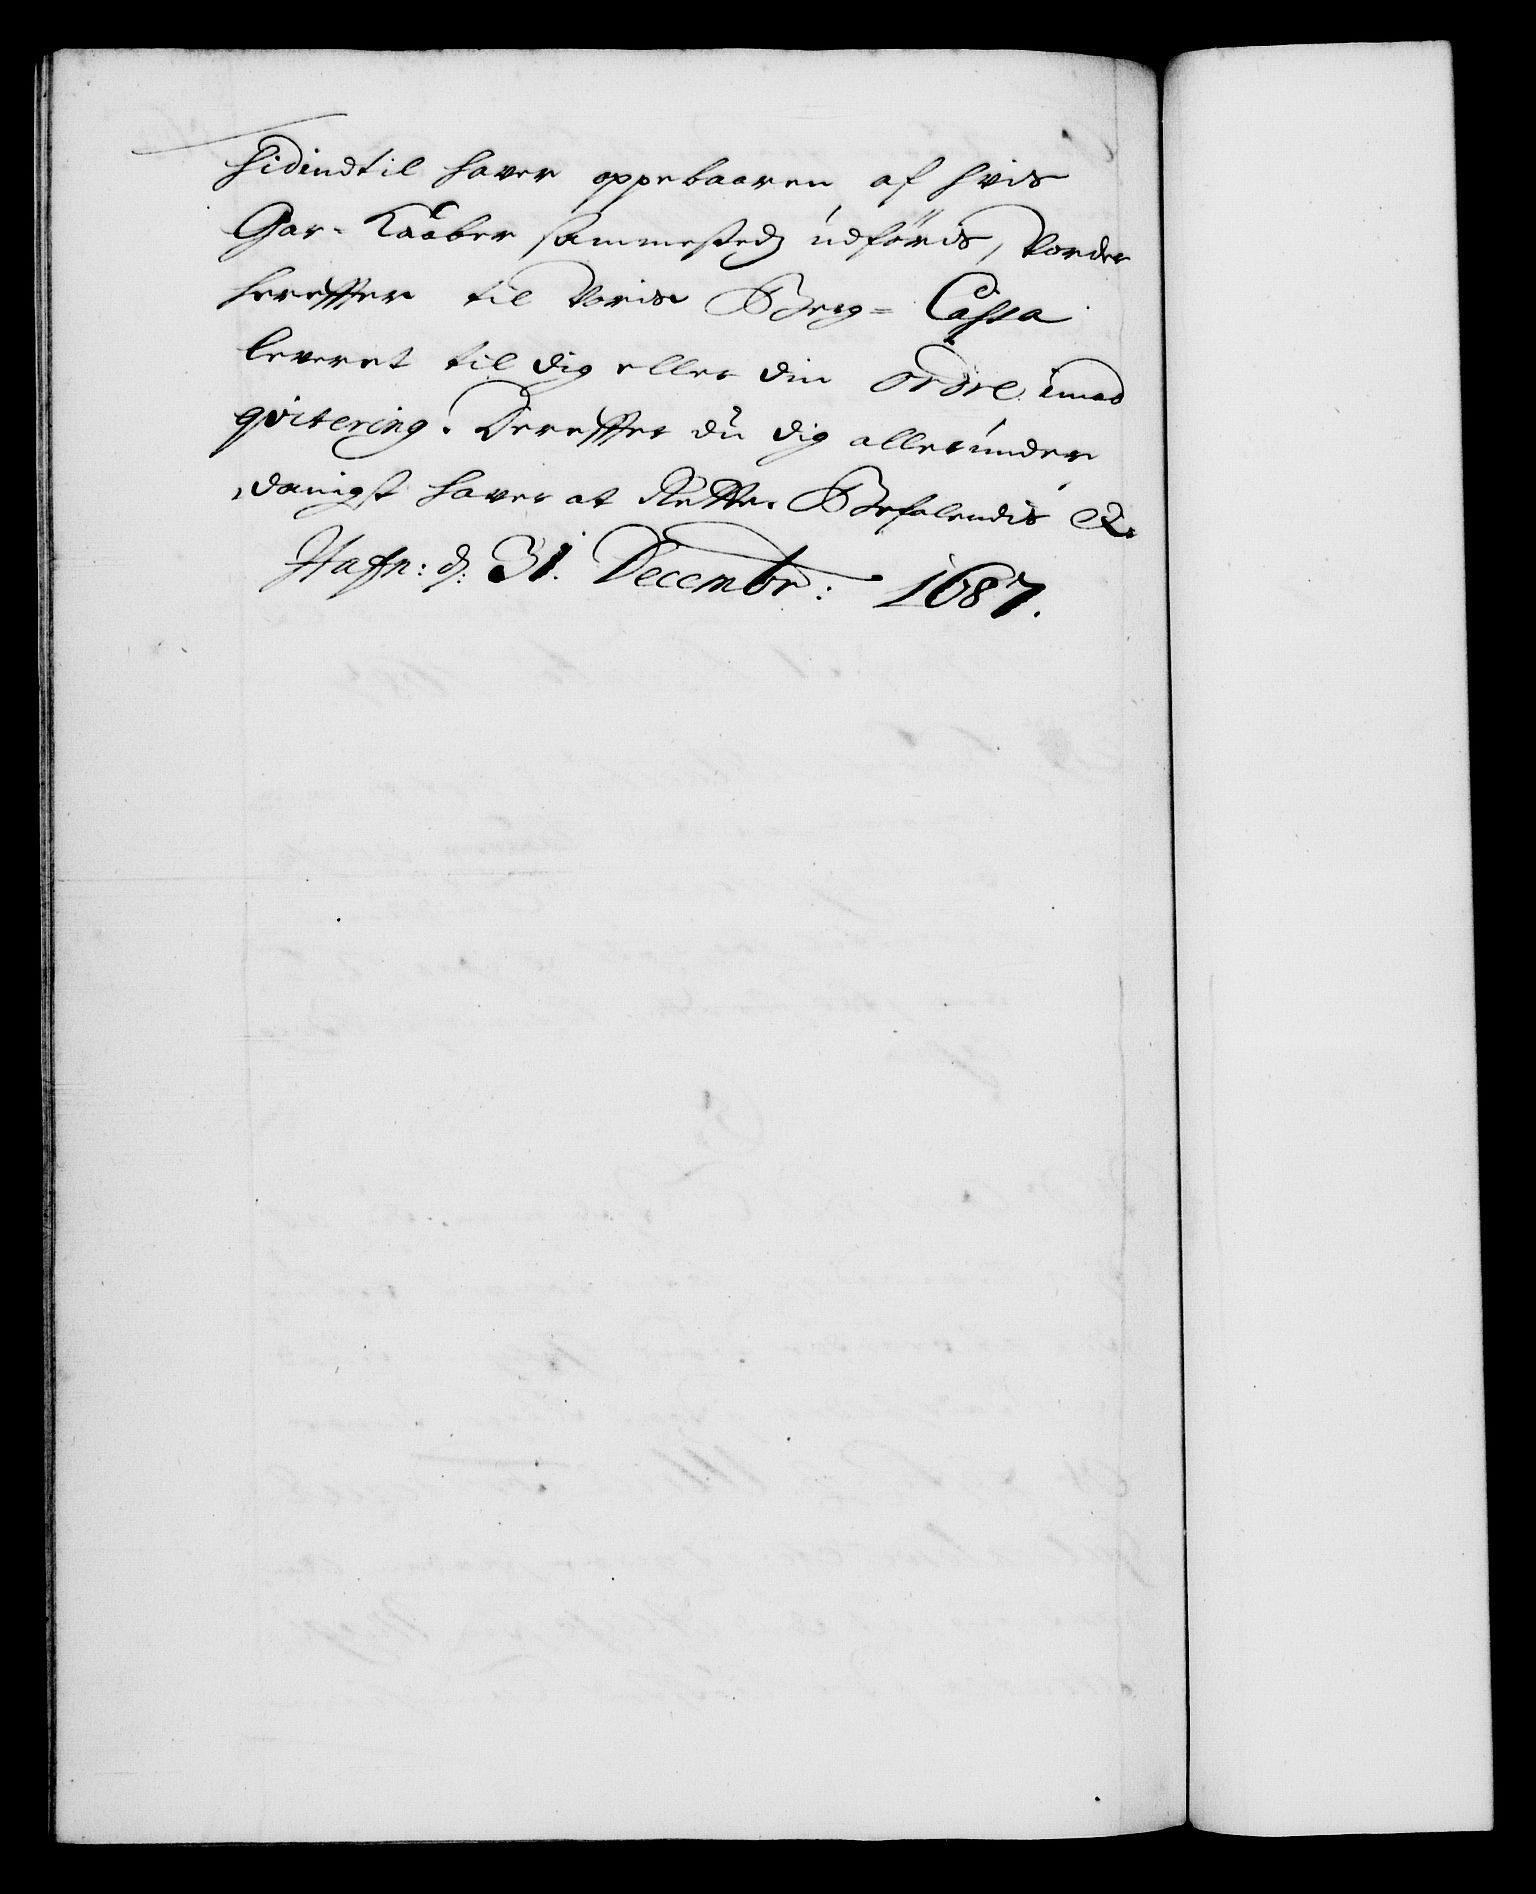 hidindtil haver oppebaaren af hvis
Gar-Kaaber sammesteds udføris, vorder
hereffter til voris Berg-Cassa
leveret til dig eller din ordre imod
qvitering. Dereffter du dig allerunder
danigst haver at Rette. Befalendis &c
Hafn: d: 31. Decembr: 1687.